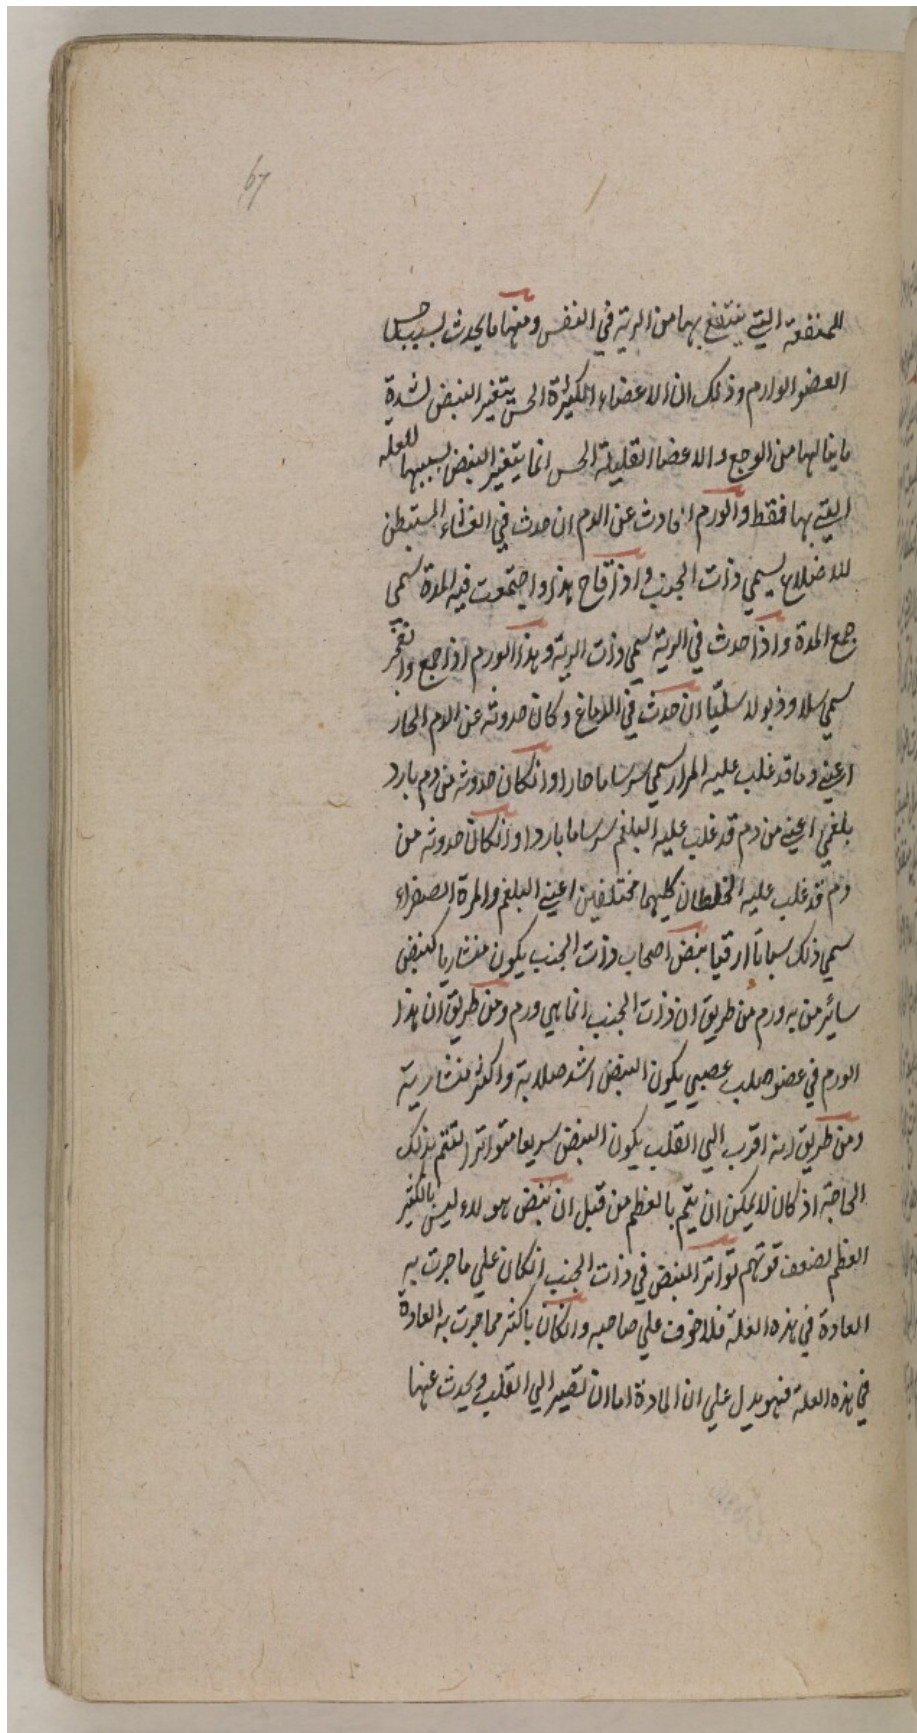 67
للمنفعة التي ينتفع بها من الرية في النفس ومنها ما يحدث بسبب حس
العضو الوارم وذلك ان الاعضاء الكثيرة الحس يتغير النبض لشدة
ما ينالها من الوجع والاعضا القليلة الحس انما يتغير النبض بسببها للعلة
التي بها فقط والورم الحادث عن الدم ان حدث في الغشاء المستبطن
للاضلاع يسمي ذات الجنب واذا قاح هذا واجتمعت فيه المدة سمي
جمع المدة واذا حدث في الرية سمي ذات الرية وهذا الورم اذا جمع وانفجر
سمي سلا وذبولا سليّا ان حدث في الدماغ وكان حدوثه عن الدم الحار
اعني دما قد غلب عليه المرار سمي سرساما حارا وانكان حدوثه من دم بارد
بلغمي اعني من دم قد غلب عليه البلغم سرساما باردا وانكان حدوثه من
دم قد غلب عليه الخلطان كليهما مختلفين اعني البلغم والمرة الصفراء
سمي ذلك سباتا ارقيا نبض اصحاب ذات الجنب يكون منشاريا كنبض
سائر من به ورم من طريق ان ذات الجنب انما هي ورم ومن طريق ان هذا
الورم في عضو صلب عصبي يكون النبض اشد صلابة واكثر منشارية
ومن طريق انه اقرب الي القلب يكون النبض سريعا متواترا لتتم بذلك
الحاجة اذ كان لا يمكن ان يتم بالعظم من قبل ان نبض هولاء ليس بالكثير
العظم لضعف قوتهم تواتر النبض في ذات الجنب انكان علي ما جرت به
العادة في هذه العلة فلا خوف علي صاحبه وانكان باكثر مما جرت به العادة
في هذه العلة فهو يدل علي ان المادة اما ان تصير الي القلب ويحدث عنها